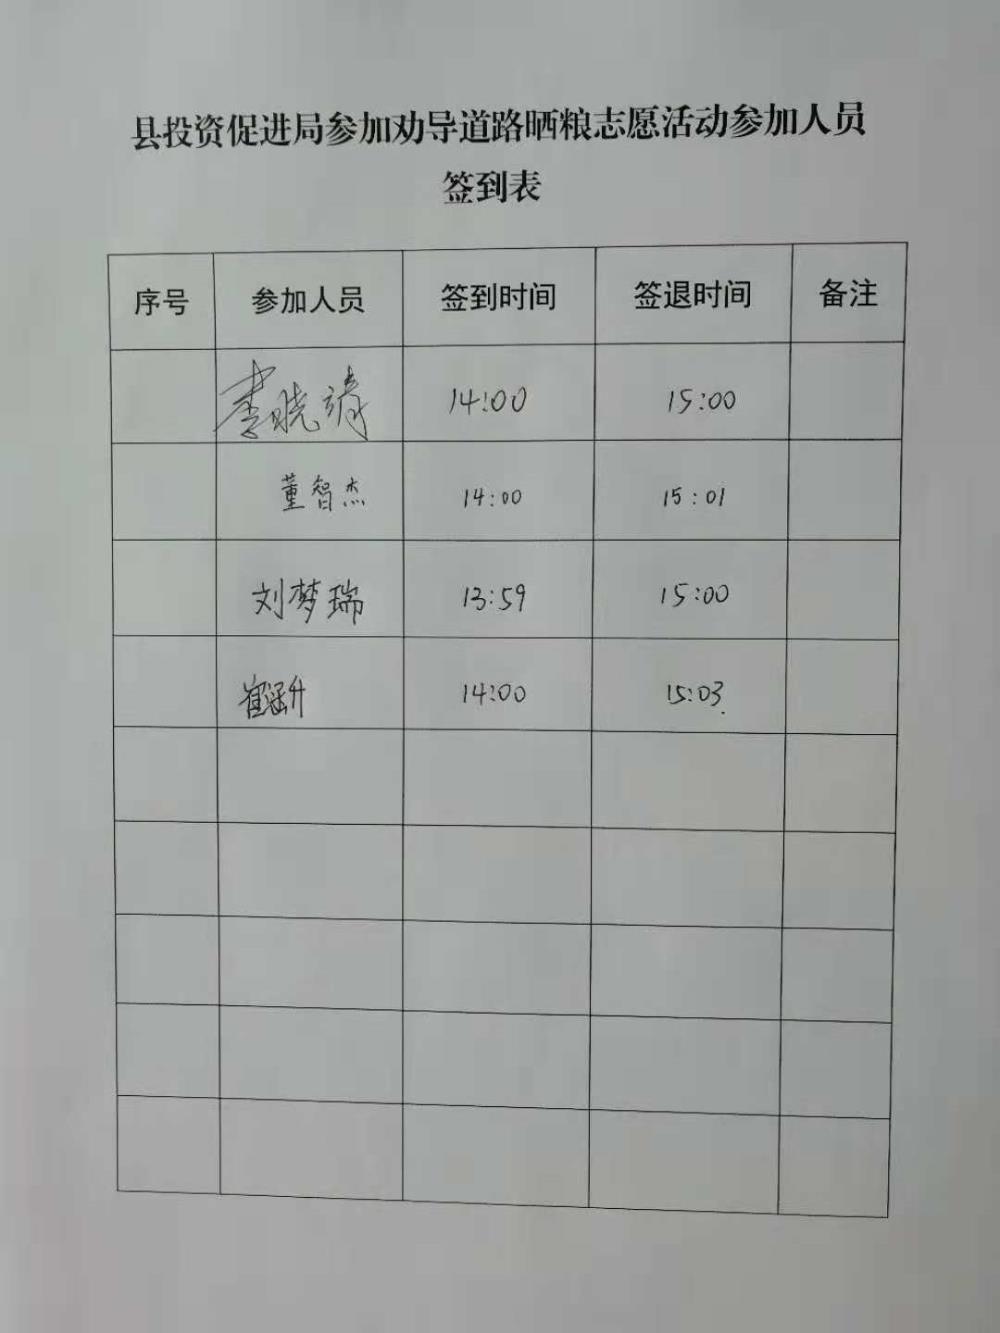 县投资促进局参加劝导道路晒粮志愿活动参加人员
签到表
序号 参加人员 签到时间 签退时间 备注
李晓靖 14:00 15:00
董智杰 14:00 15:01
刘梦瑞 13:59 15:00
崔涵升 14:00 15:03